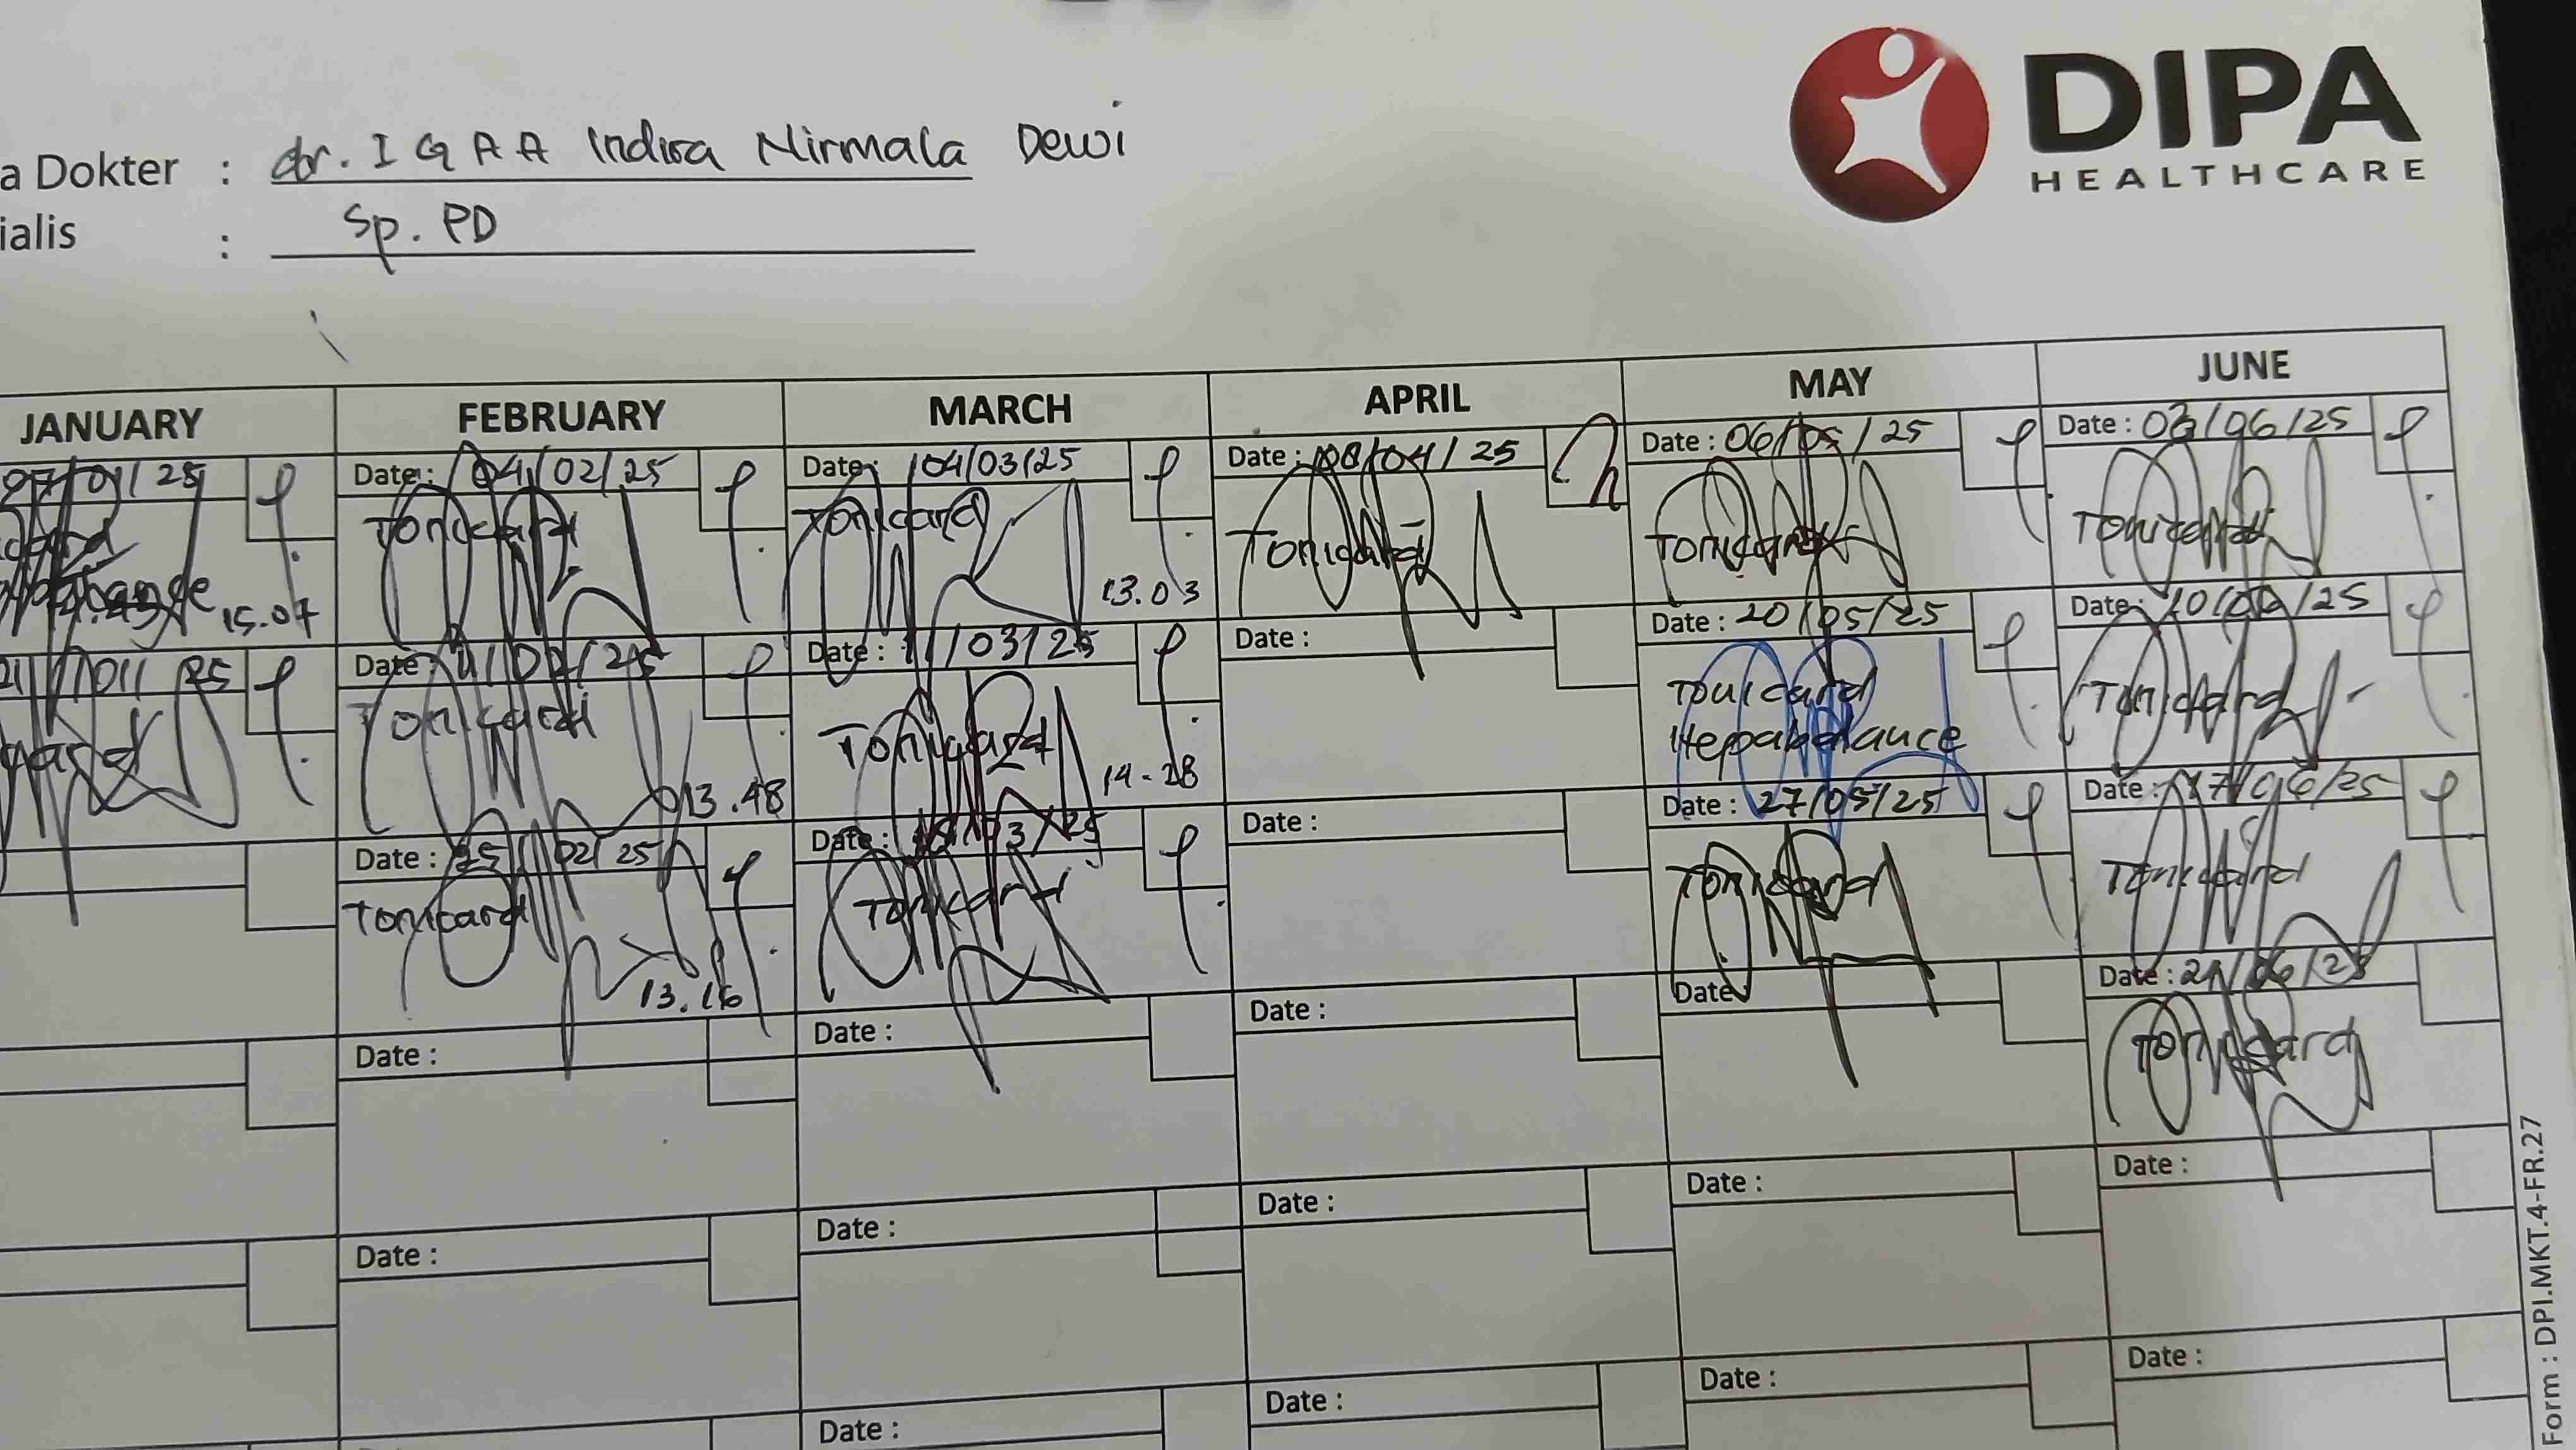 DIPA
HEALTHCARE
a Dokter : dr. I G A A Indira Nirmala Dewi
ialis : Sp. PD
JANUARY FEBRUARY MARCH APRIL MAY JUNE
07/01/25 Date : 04/02/25 Date : 04/03/25 Date : 08/04/25 Date : 06/05/25 Date : 03/06/25
Tonicard Tonicard Tonicard Tonicard Tonicard
15.07 13.03
21/01/25 Date : 11/02/25 Date : 11/03/25 Date : Date : 20/05/25 Date : 10/06/25
Tonicard Tonicard Tonicard Tonicard
Hepabalance
13.48 14-28
Date : 25/02/25 Date : Date : Date : 27/05/25 Date : 17/06/25
Tonicard Tonicard Tonicard Tonicard
13.16
Date : Date : Date : Date Date : 24/06/25
Tonicard
Date : Date : Date : Date : Date :
Date : Date : Date : Date :
Form : DPI.MKT.4-FR.27